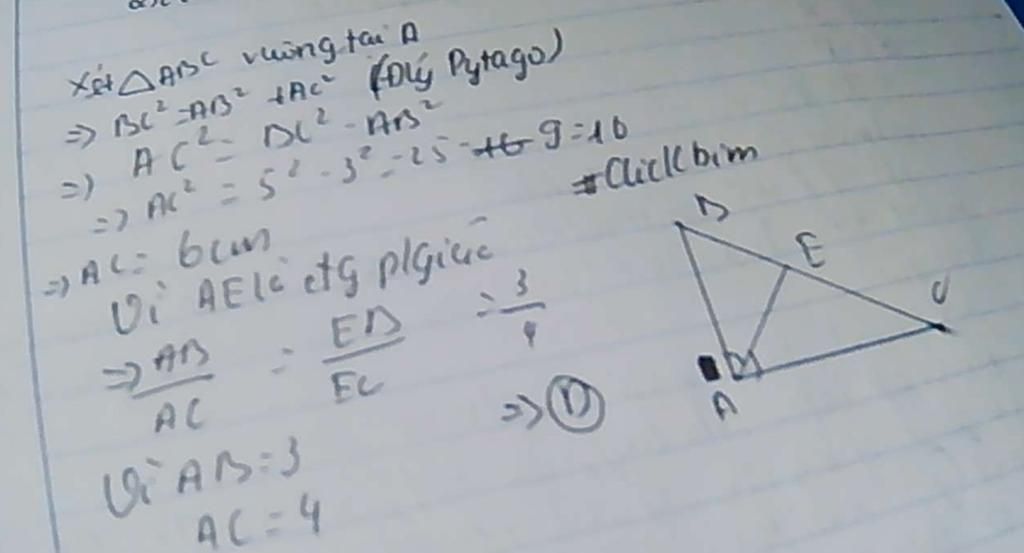 Xét △ABC vuông tại A
=> BC² = AB² + AC² (Đlý Pytago)
=> AC² = BC² - AB²
=> AC² = 5² - 3² = 25 - 9 = 16
=> AC = 6cm
#Clickbim
Vì AE là đtg p/giác
=> AB/AC = EB/EC = 3/4
=> D
Vì AB = 3
AC = 4
B
E
C
A